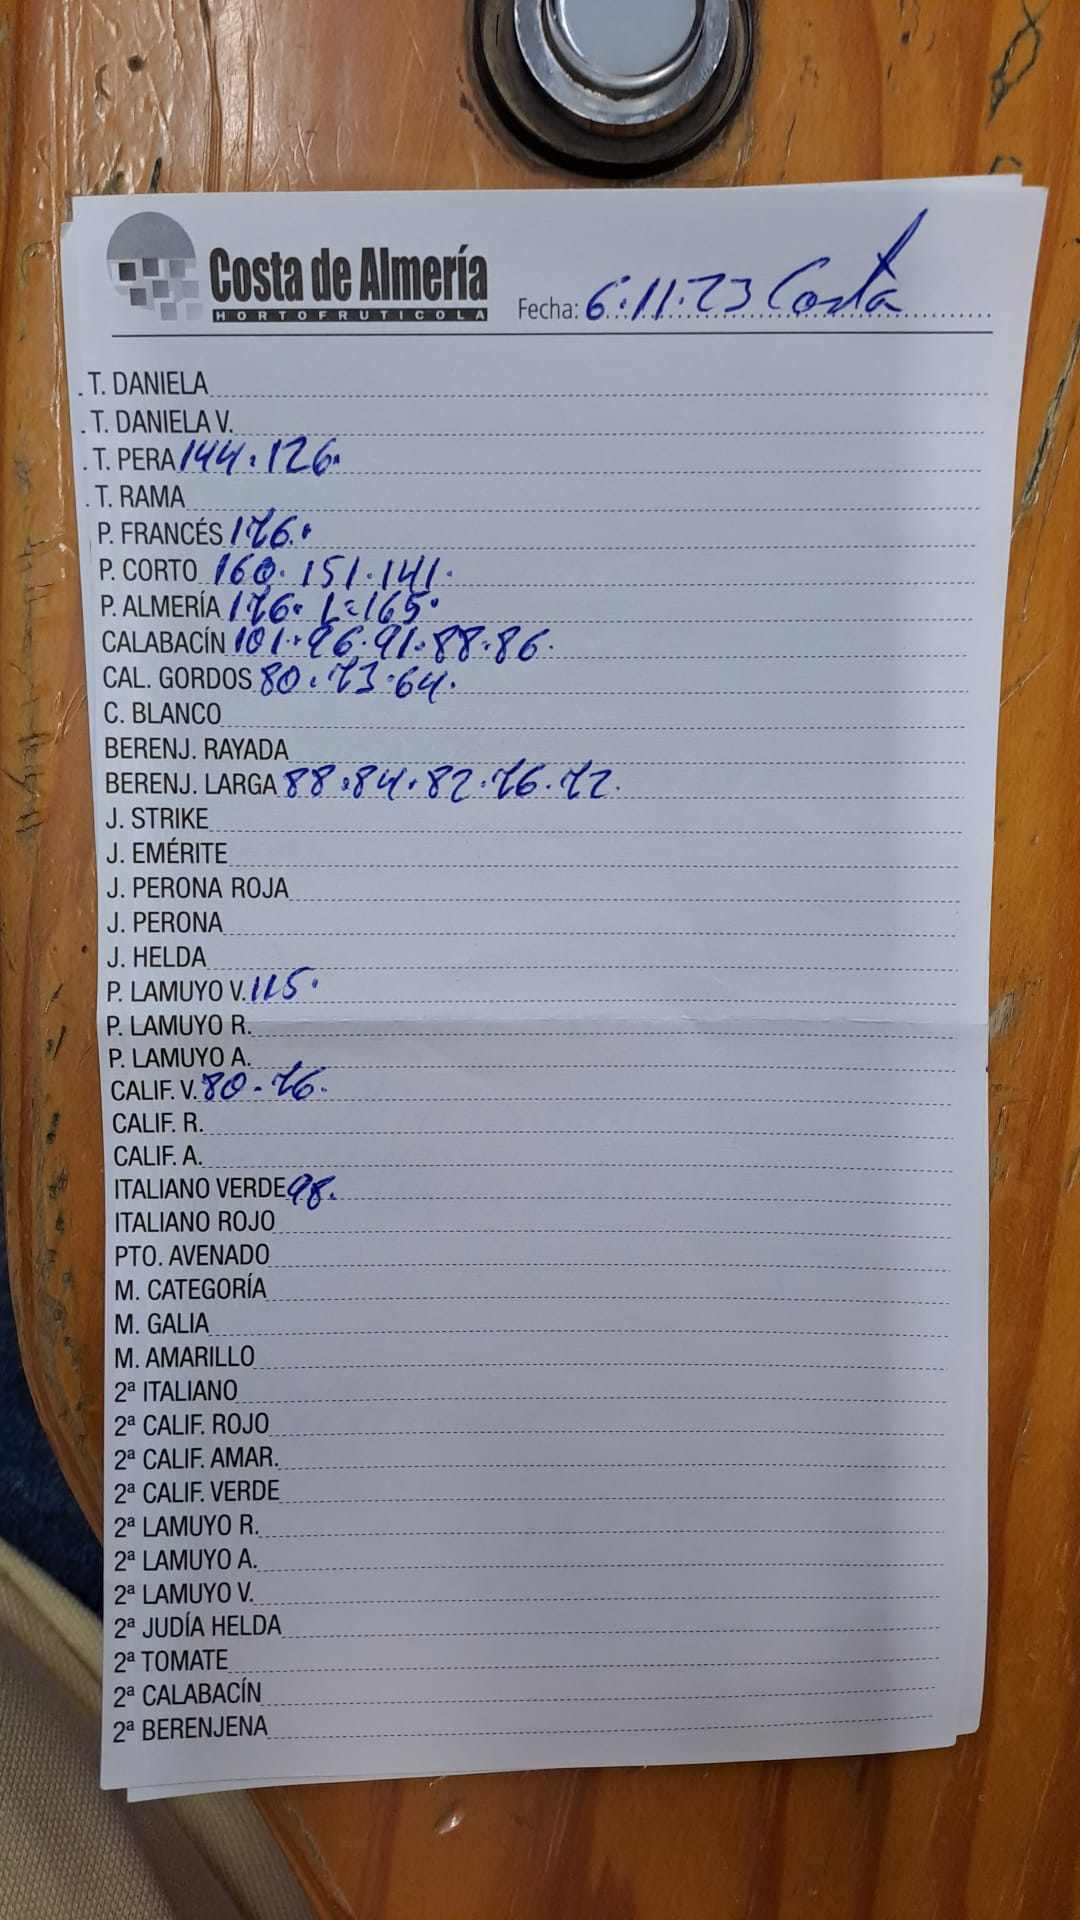 Costa de Almería
HORTOFRUTICOLA
Fecha: 6.11.23 Costa
T. DANIELA
T. DANIELA V.
T. PERA 144.126.
T. RAMA
P. FRANCÉS 176.
P. CORTO 160.151.141.
P. ALMERÍA 176. L=165.
CALABACÍN 101.96.91.88.86.
CAL. GORDOS 80.73.64.
C. BLANCO
BERENJ. RAYADA
BERENJ. LARGA 88.84.82.76.72.
J. STRIKE
J. EMÉRITE
J. PERONA ROJA
J. PERONA
J. HELDA
P. LAMUYO V. 115.
P. LAMUYO R.
P. LAMUYO A.
CALIF. V. 80-76.
CALIF. R.
CALIF. A.
ITALIANO VERDE 98.
ITALIANO ROJO
PTO. AVENADO
M. CATEGORÍA
M. GALIA
M. AMARILLO
2ª ITALIANO
2ª CALIF. ROJO
2ª CALIF. AMAR.
2ª CALIF. VERDE
2ª LAMUYO R.
2ª LAMUYO A.
2ª LAMUYO V.
2ª JUDÍA HELDA
2ª TOMATE
2ª CALABACÍN
2ª BERENJENA